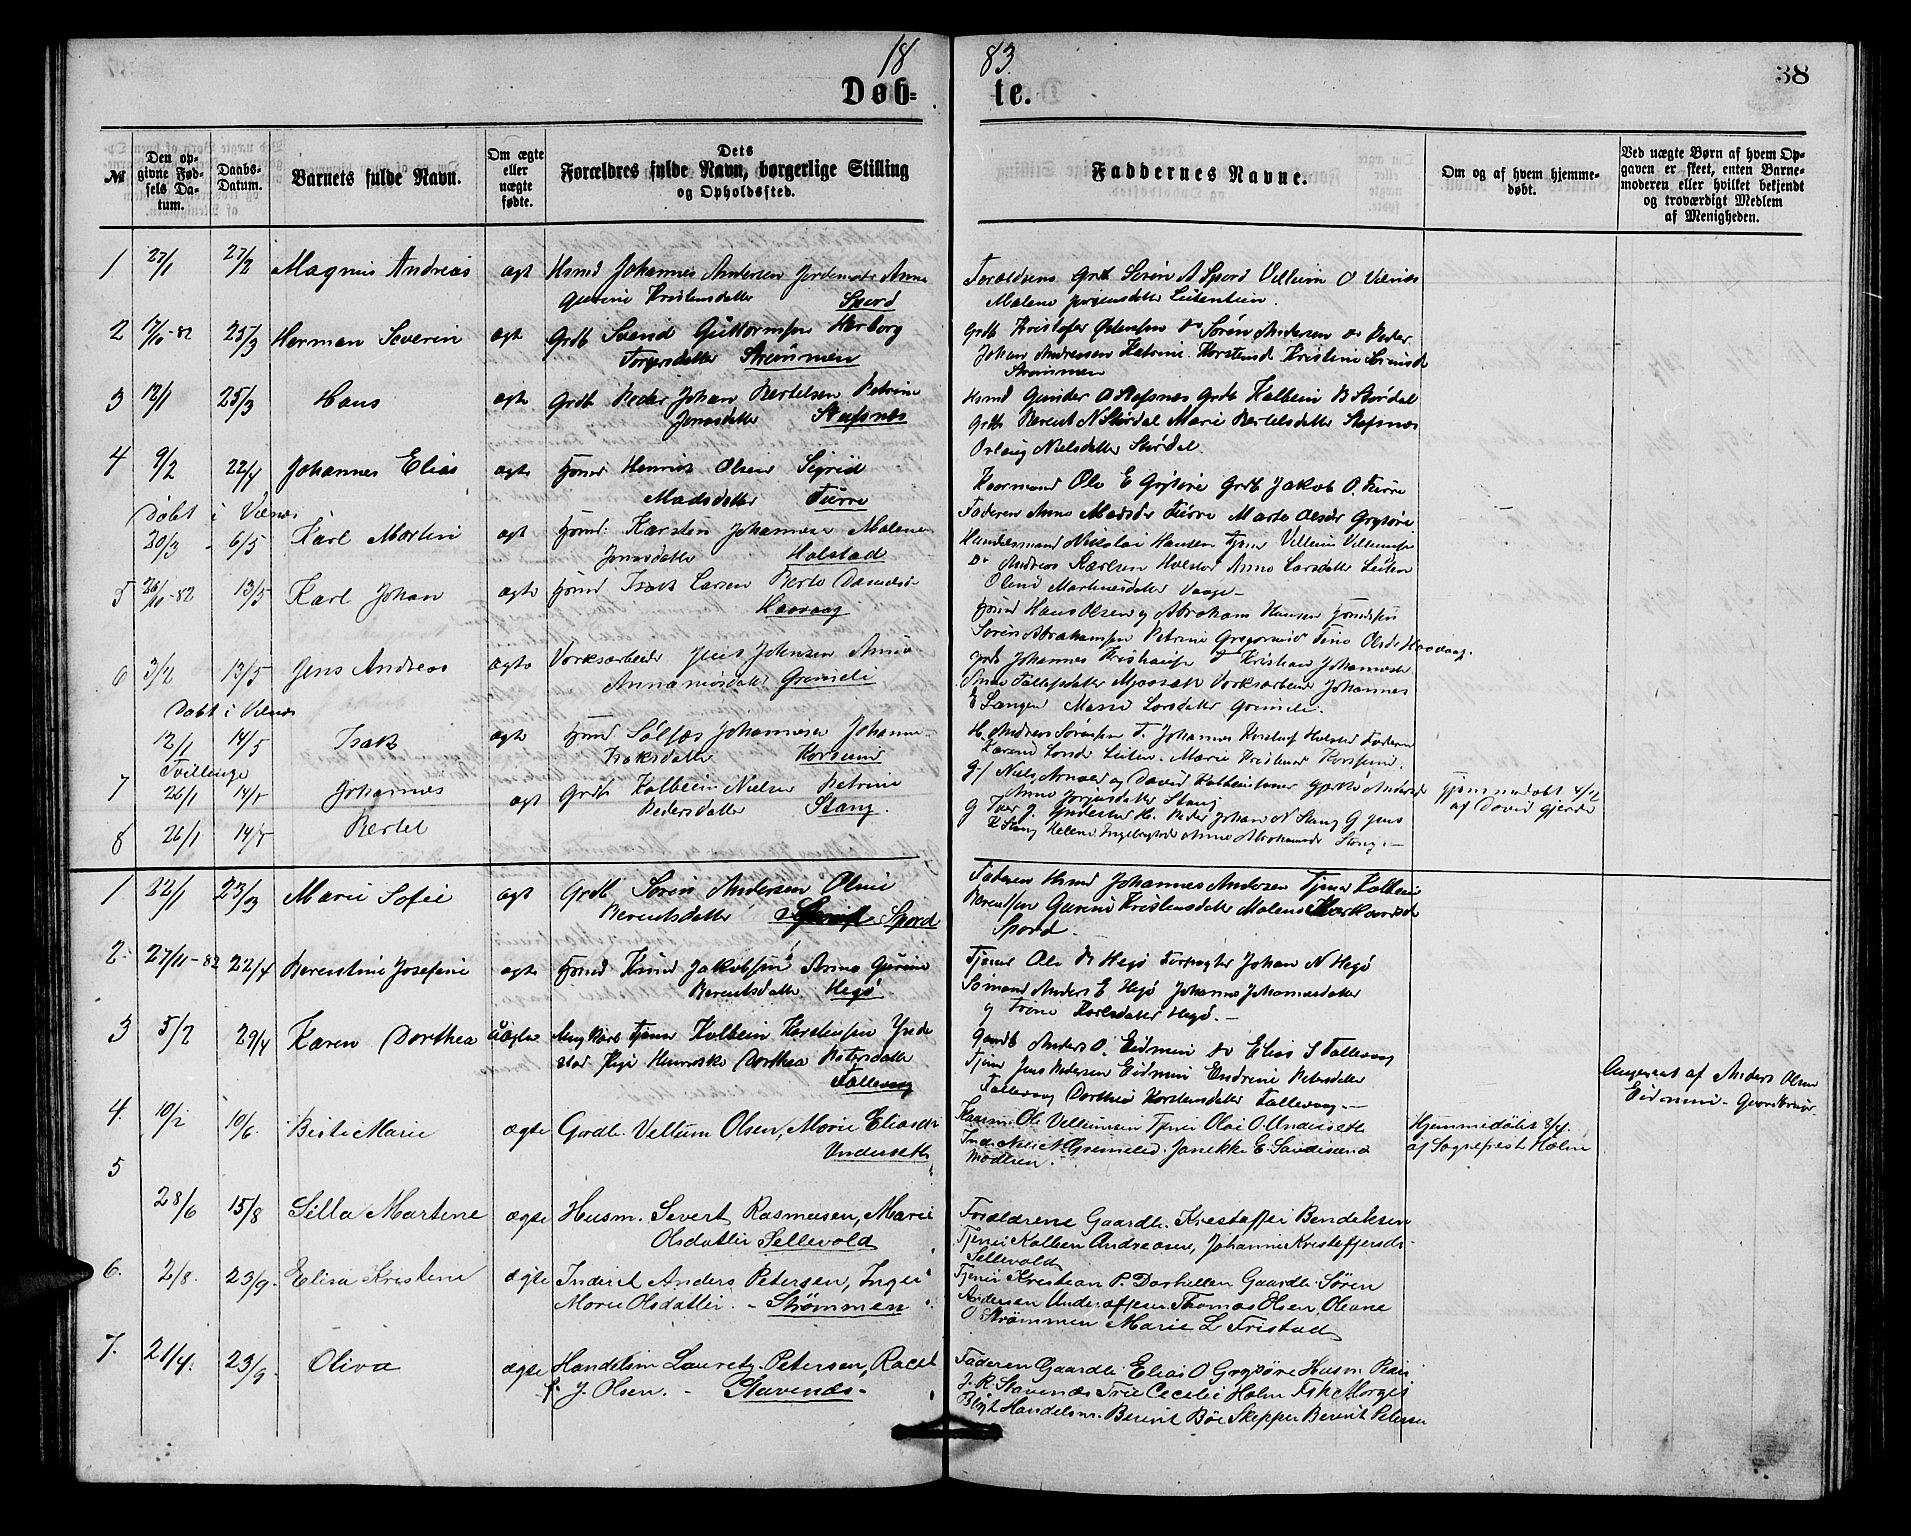 18 83.
38
Døb- te.
№
Den opgivne Fødsels Datum.
Daabs-Datum.
Barnets fulde Navn.
Om ægte eller uægte fødte.
Dets Forældres fulde Navn, borgerlige Stilling og Opholdssted.
Faddernes Navne.
Om og af hvem hjemmedøbt.
Ved uægte Børn af hvem Opgaven er skeet, enten Barnemoderen eller hvilket bekjendt og troværdigt Medlem af Menigheden.
1 27/1 27/2 Magnus Andreas ægt Hsmd Johannes Andersen Jordemoder Anne
Gurine Kristensdatter Spord
Forældrene Grdb Sørin A Spord Villum O Vilnæs
Malene Jørgensdatter Leitentein.
2 12/10-82 25/3 Herman Severin ægt Grdb Svend Guttormsen Herborg
Torgersdatter Strømmen
Grdb Kristofer Østensen do Søren Andersen do Peder
Johan Andreassen Katrine Karstensd Kristine Svensd
Strømmen
3 12/1 25/3 Hans ægte Grdb Peder Johan Bertelsen Petrine
Jonasdatter Stafsnæs
Hsmd Gunder O Stafsnæs Grdb Kolbein B Stordal
Grdb Berent N Stordal Marie Bertelsdatter Stafsnæs
Orlaug Nielsdatter Stordal.
4 9/2 22/4 Johannes Elias ægte Hsmd Henrik Olsen Sigrid
Madsdatter Furre
Kaarmand Ole E Grytøre Grdb Jakob O. Furre
Faderen Anne Madsdr Furre Marte Olsdr Grytøre
Døbt i Vilnæs
20/3 6/5 Karl Martin ægt Hsmd. Karsten Johannesen Malene
Jonasdatter Holstad
Husmand Nikolai Hansen Tjener Villum Villumsen
do Andreas Karlsen Holstad Anne Larsdatter Leiten
Oline Martinusdatter Vaage
5 26/10-82 13/5 Karl Johan ægte Hsmd Isak Larsen Berte Danielsdr
Haavaag
Hsmd Hans Olsen og Abraham Hansen
Søren Abrahamsen Petrine Gregoriusd Tine Olsdr Haavaag.
6 3/2 13/5 Jens Andreas ægte Værksarbeider Jens Johnsen Anne
Ananiasdatter Grimeli
Grdb Johannes Kristiansen T Kristian Johannesen
Anne Tollefsdatter Myrsæth Værksarbeider Johannes
E Langen Marie Larsdatter Grimeli.
Døbt i Vilnæs
12/1 14/5 Isak ægte Hsmd Sølfæs Johannesen Johanne
Isaksdatter Korssund
H. Andreas Sørensen T. Johannes Karstens Holstad Faderen
Karen Larsdr Leiten. Marie Kristensd Korssund.
Tvillinge
7 26/1 14/5 Johannes ægt Grdb Kolbein Nielsen Petrine
Pedersdatter Stang.
G/ Niels Arnold og David Kolbeinsen Gjertrud Andersd
Anne Jørgensdatter Stang
Hjemmedøbt 4/12
af David Gjerde
8 26/1 14/5 Bertel
G Iver J. Yndestad H. Peder Johan N Stang G Jens
K Stang Helene Ingebrigtsd Anne Abrahamsd Stang.
1 22/1 23/3 Marie Sofie ægt Grdb Søren Andersen Oline
Berentsdatter Spord
Faderen Hsmd Johannes Andersen Tjener Kolbein
Berentsen Gurine Kristensdatter Malene Markusd
Spord
2 27/11-82 22/4 Berentine Josefine ægte Hsmd Knud Jakobsen Anne Gurine
Berentsdatter Hegø
Tjener Ole K Hegø Forpagter Johan N Hegø
Sømand Anders E Hegø Johanne Johannesdatter
og Trine Karlsdatter Hegø.
3 5/2 29/4 Karen Dorthea uægte Ungkarl Tjener Kolbein Karstensen Ynde-
stad Pige Henrikke Dorthea Petersdatter
Tallevaag
Gaardb Anders O. Eidmin do Elias S Tallevaag
Tjener Jens Pedersen Eidmin Endrine Petersdatter
Tallevaag Dorthea Karstensdatter Tallevaag.
Angivet af Anders Olsen
Eidmin - Gaardbruger
4. 10/2 10/6. Berte Marie ægte Grdb. Vellum Olsen, Marie Eliasdtr
Underseth
Kaarm. Ole Vellumsen Tjener Olai O. Underseth
Ind. Nils N Grimeli. Janekke E. Sandesund
Modren.
Hjemmedøbt 8/4.
af Sogneprest Holm
5 28/6 15/8 Silla Martine ægte Husm. Severt Rasmusen, Marie
Olsdatter Sellevold
Forældrene Gaardb. Krestaffer Bendeksen
Tjener Kolben Andreasen, Johanne Krestefjersdr
Sellevold
6. 2/8. 23/9. Elisa Kristine ægte Inderst Anders Petersen, Inger
Marie Olsdatter. - Strømmen
Tjener Kristian P. Dorhellen Gaardb. Søren
Andersen Thomas Olsen, Oleane
O Strømmen Marie L Tristad
7. 21/4. 23/9 Oliva ægte Handelsm Lauretz Petersen, Rachel
f. J. Olsen. - Stavenæs.
Faderen Gaardb. Elias O Grytøre Husm. Peder
J. R. Stavenæs Frue Cecelie Holm Frk Margit
Blyt Handelsm. Berent Böe Skepper Berent Petersen